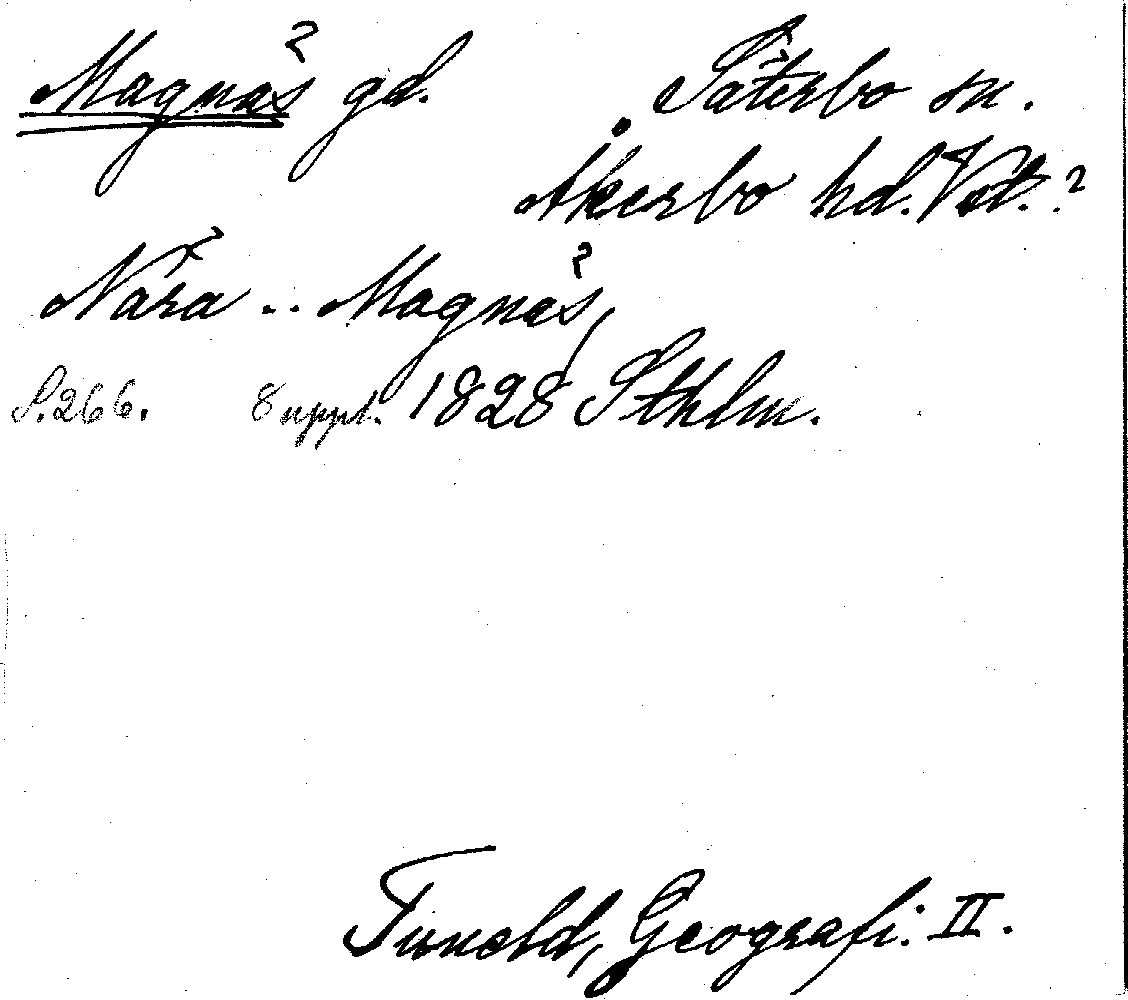 Magnäs gd. Säterbo sn.
Åkerbo hd. Vstm.?
Nära .. Magnäs,
S. 266. 8 uppl. 1828 Sthlm.
Tuneld, Geografi. II.